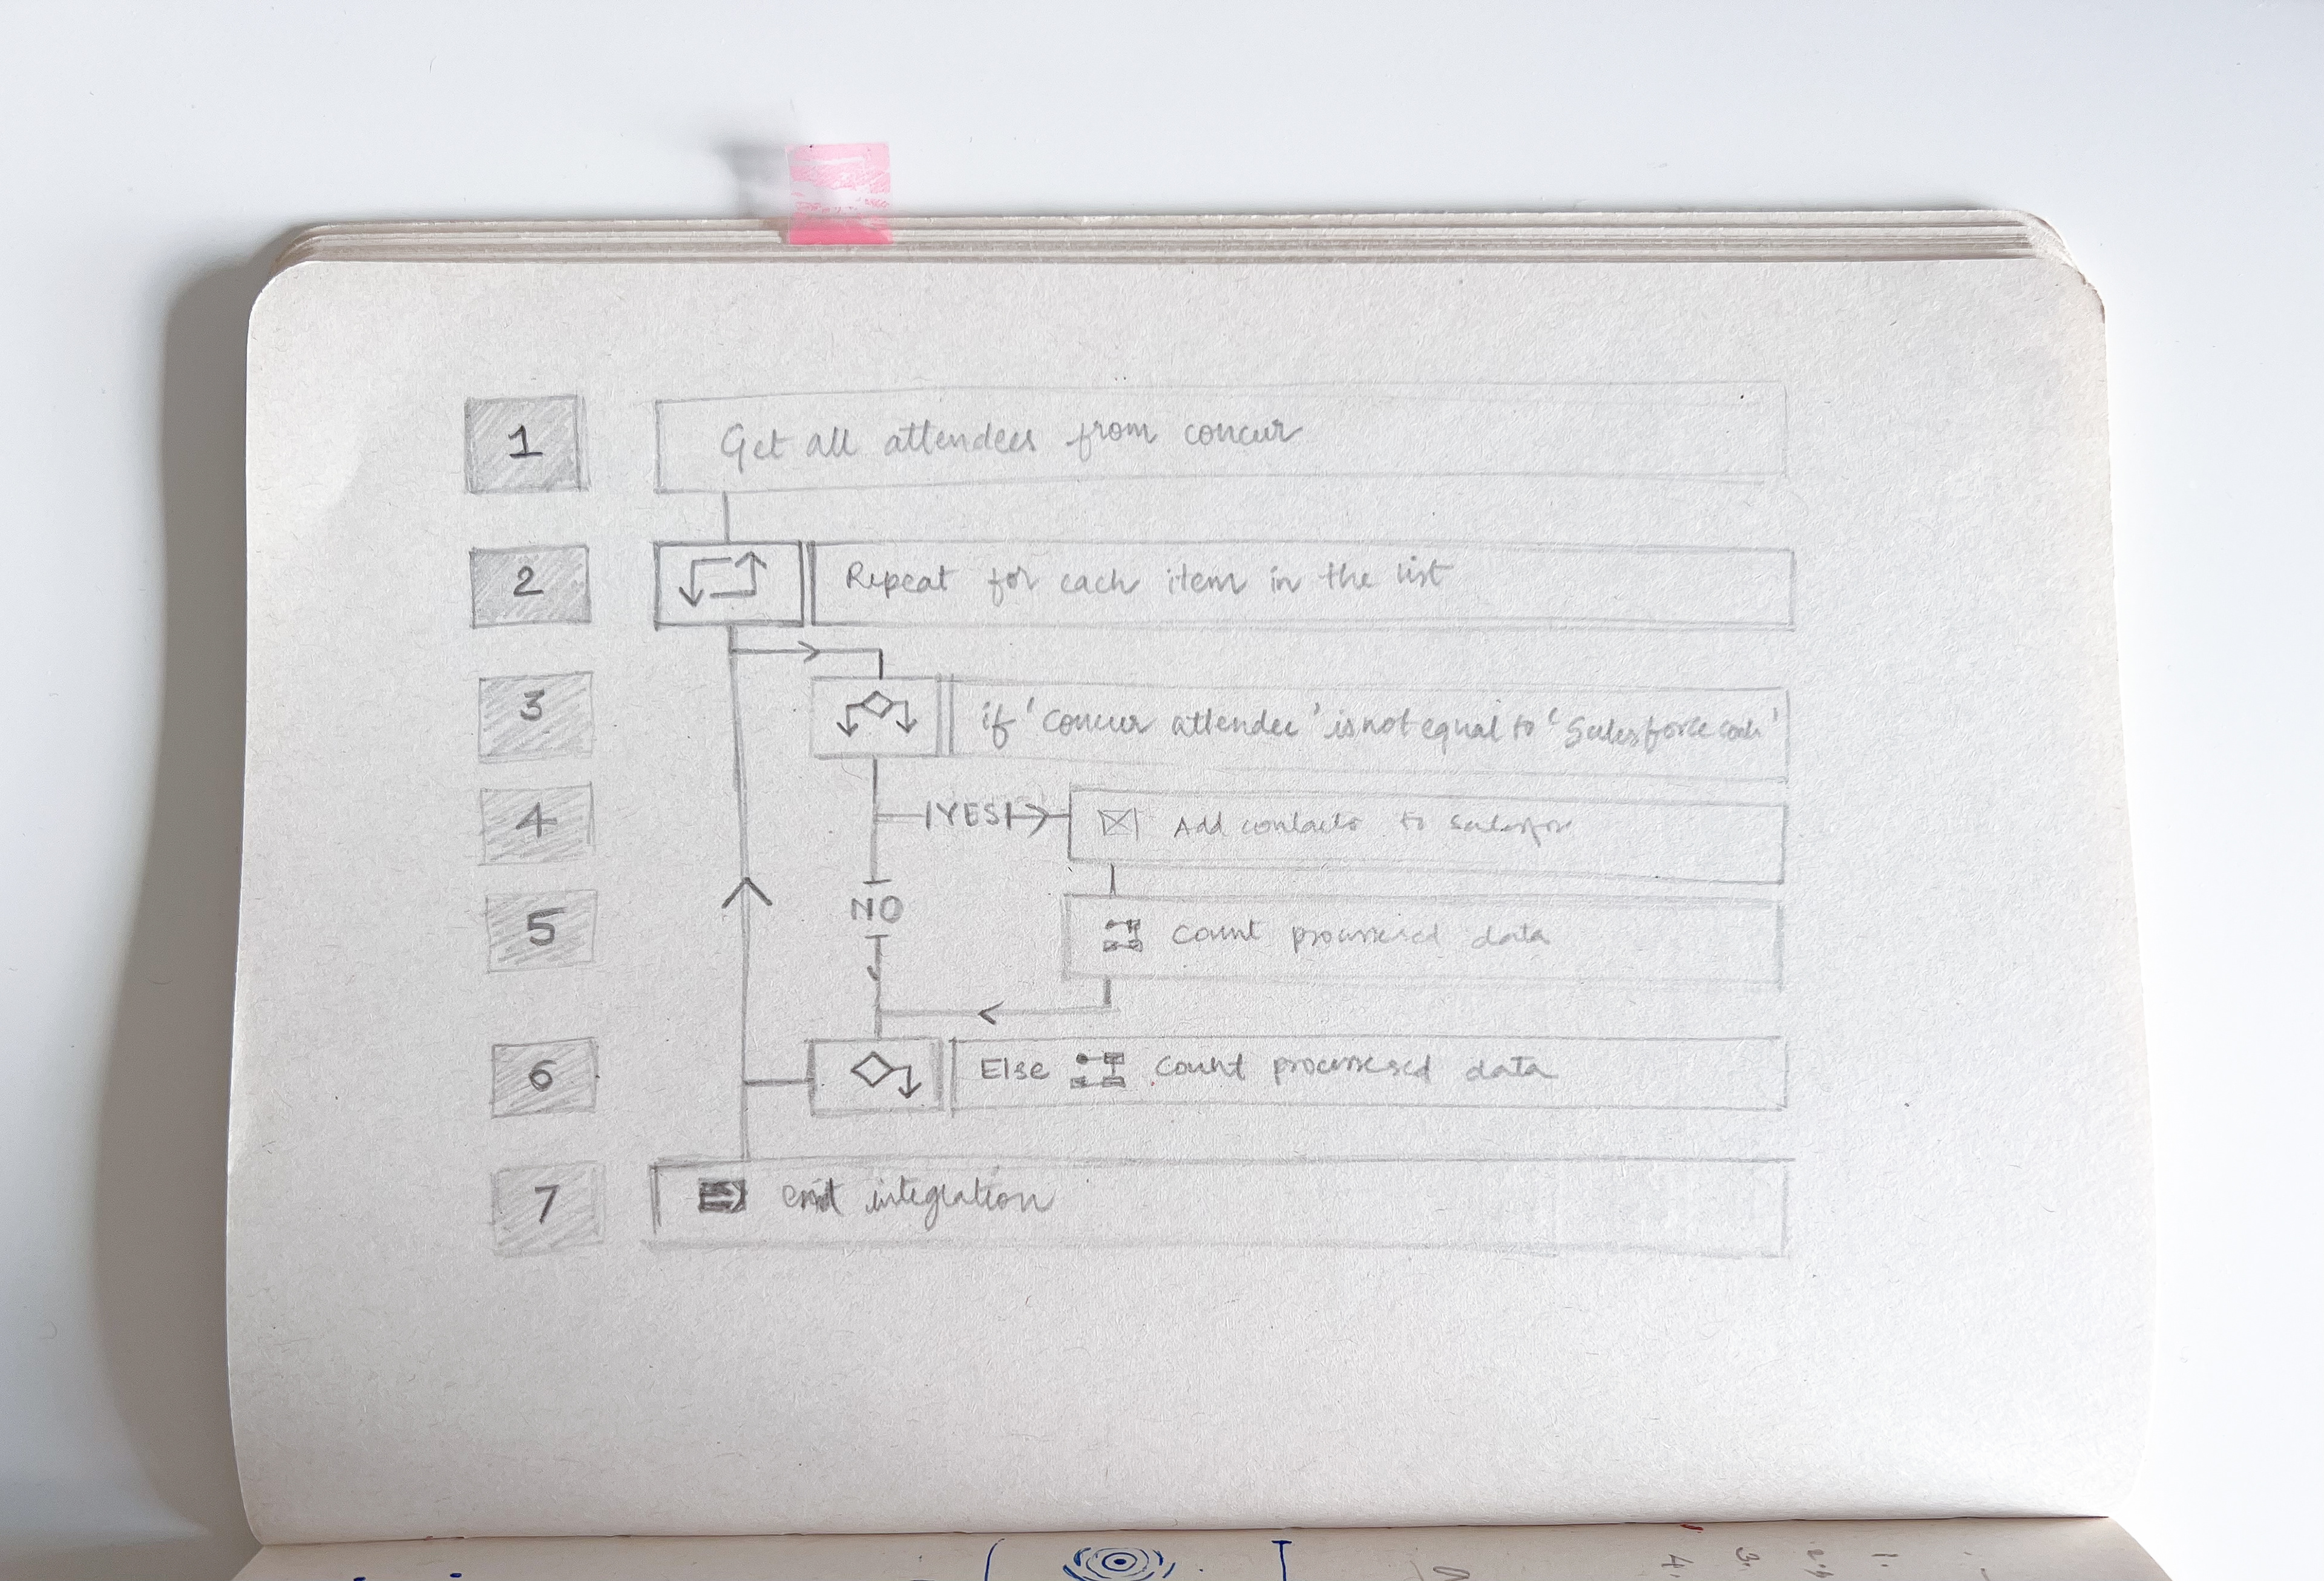 1
Get all attendees from concur
2
Repeat for each item in the list
3
if 'concur attendee' is not equal to 'Salesforce
4
YES
Add contacts to
5
NO
Count data
6
Else Count data
7
integration
4.
3.
1.